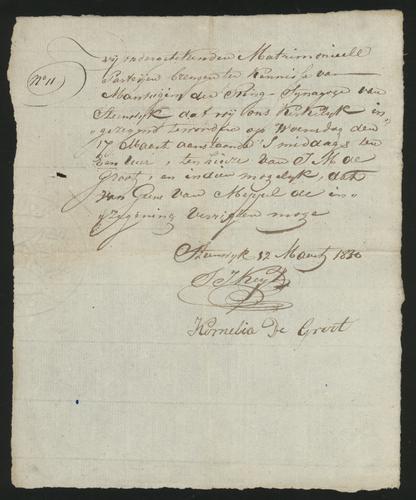 Wij ondergetekenden Matrimonieele
No 11
Partijen brengen ter Kennisse van
Manhigim der Ring-Synagoge van
Steenwijk dat wij ons Kerkelijk in„
„gezegent te worden op Woensdag den
17 Maart aanstaande 's middags ten
Een uur, ten huize van J M de
Groot, en indien mogelijk, dat
van Geens van Meppel die in„
„zegening verrigten moge
Steenwijk 12 Maart 1830
S J Keyl
Kornelia De Groot